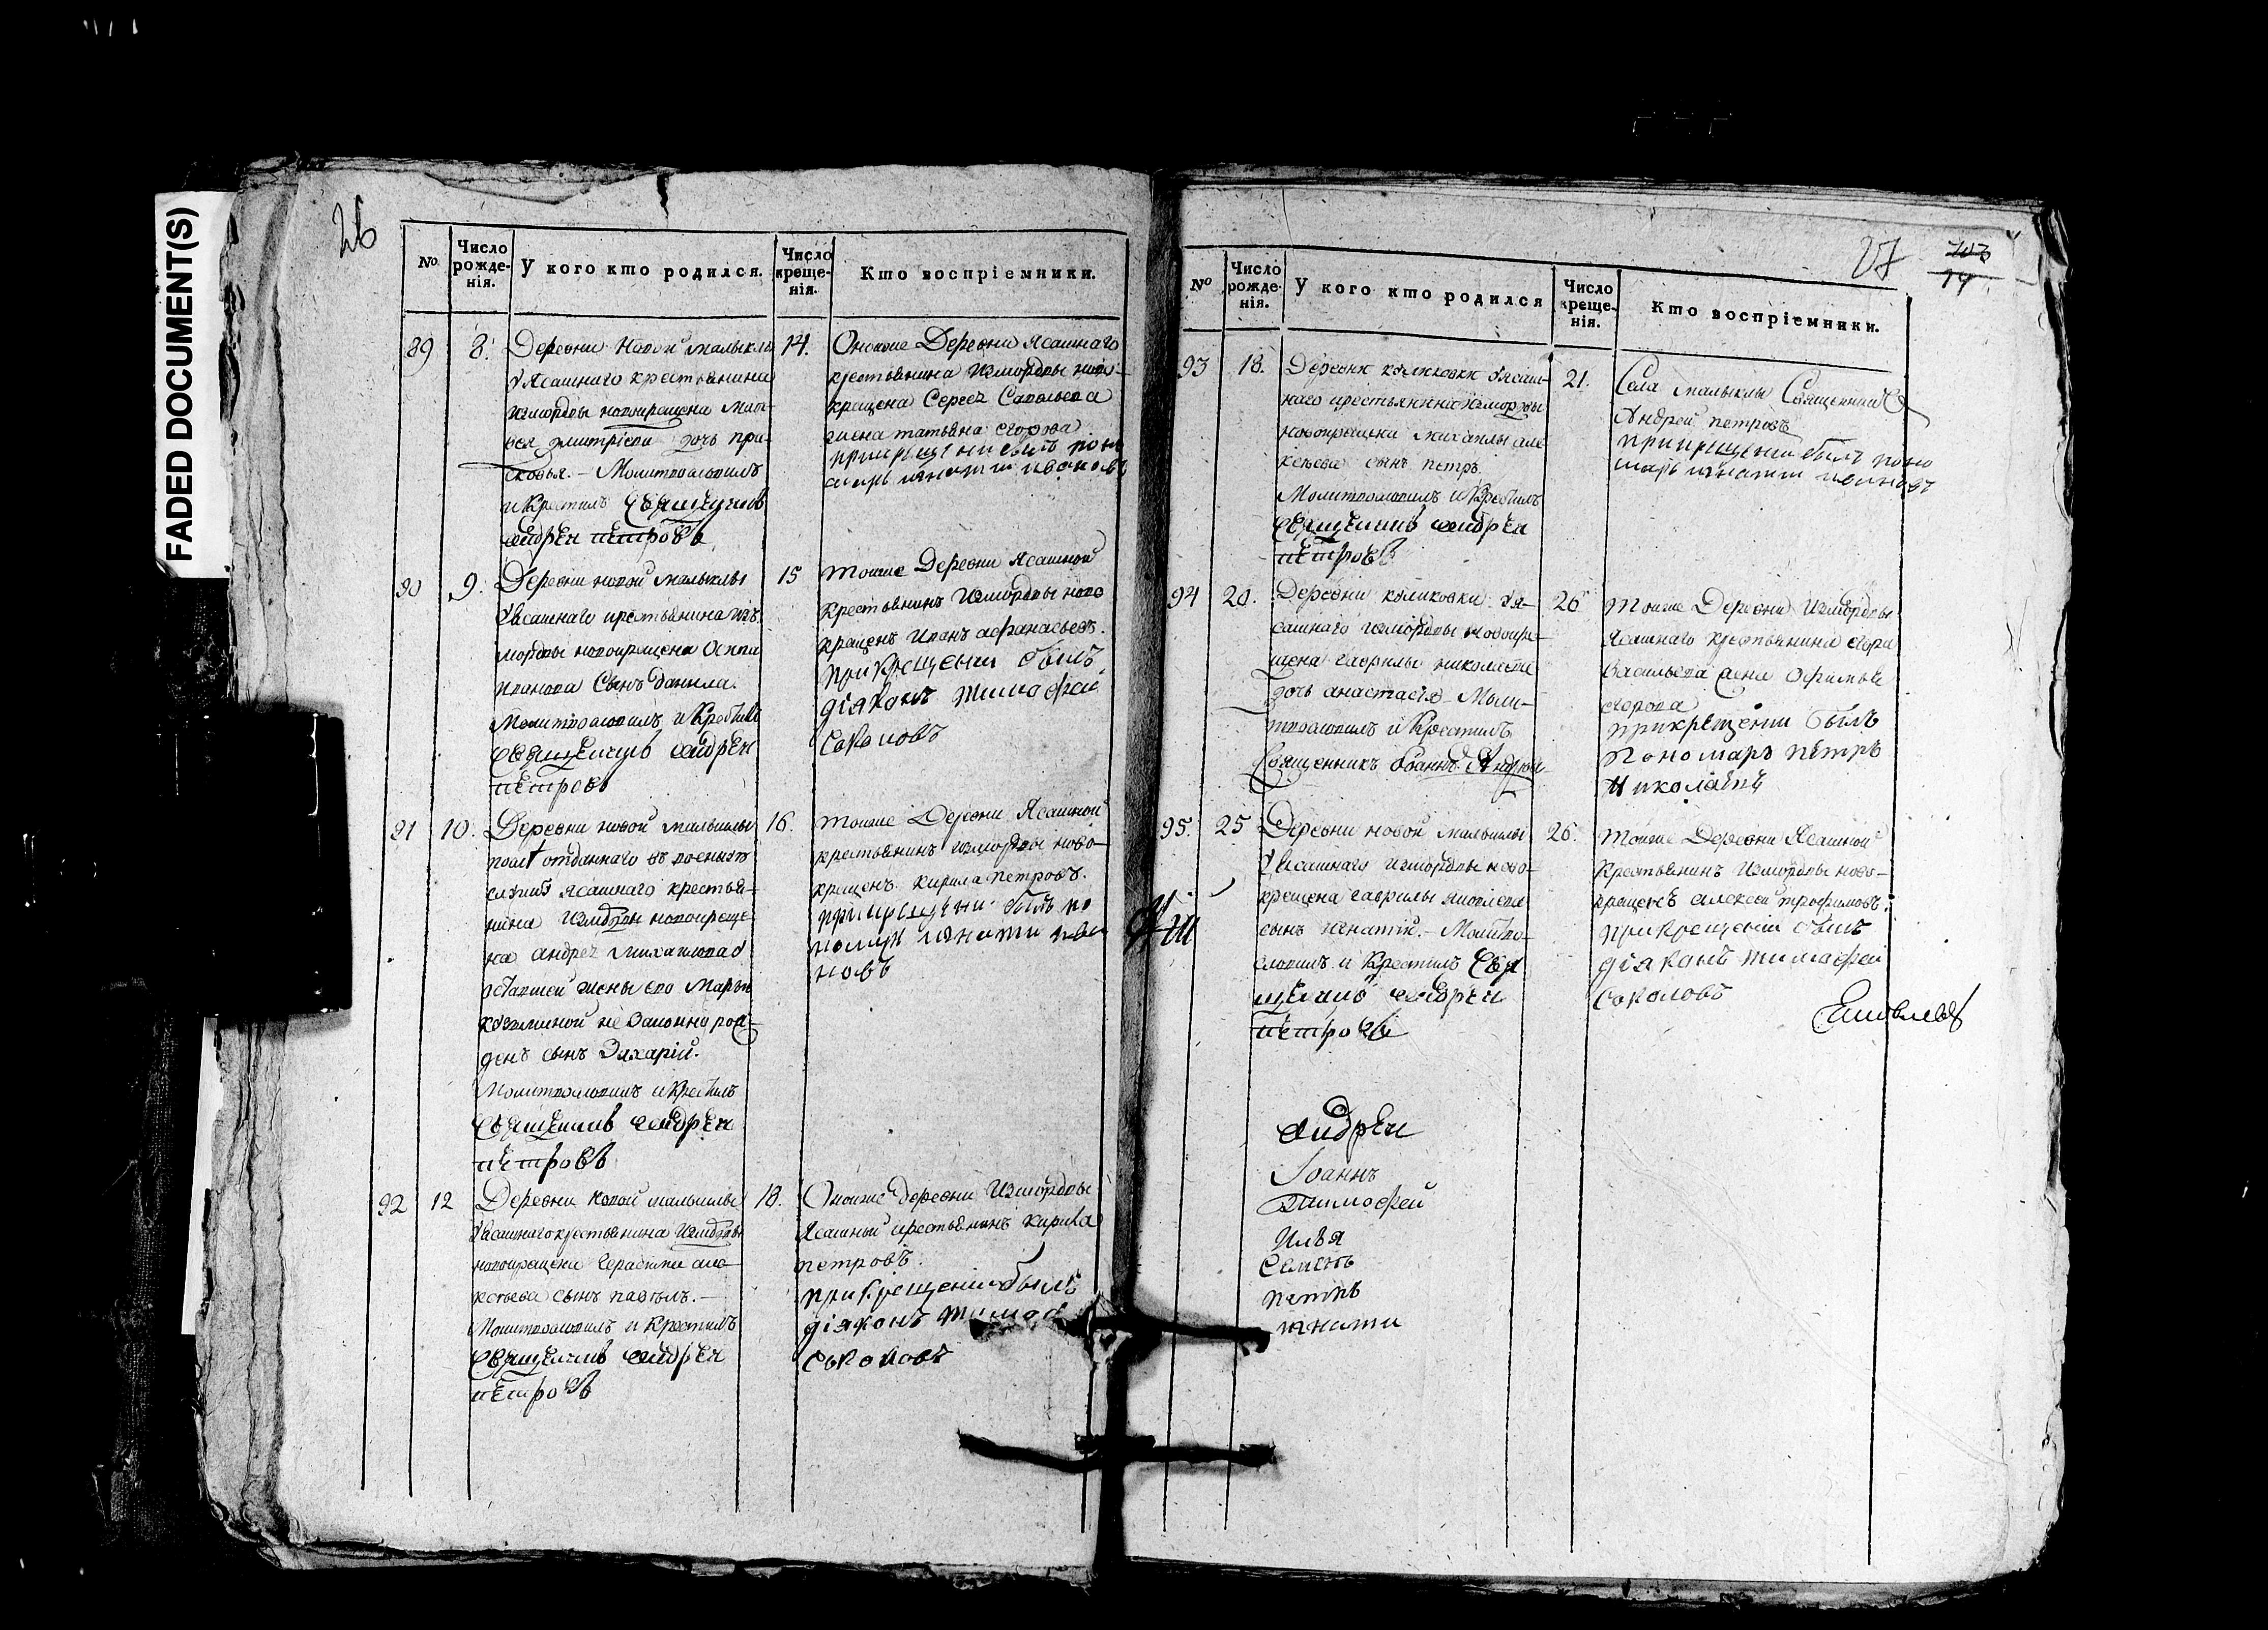 FADED DOCUMENT(S)
26
№
Число рожде-нія.
У кого кто родился.
Число креще-нія.
Кто воспріемники.
89
8.
Деревни новой малыклы
Уясашнаго крестьянина
измордвы новокрещена Мат-
вея дмитріева дочь пра-
сковья. — Молитвословилъ
и Крестилъ священникъ
андрей петровъ
14.
Оноиже Деревни Ясашнаго
крестьянина Измордвы ново-
крещена Сергея Савельева
жена татьяна егорова
прикрещени былъ поно
марь игнатии ивановъ
90
9.
Деревни новой малыклы
Уясашнаго крестьянина изъ
мордвы новокрещена Осипа
иванова Сынъ данила.
Молитвословилъ и Крестилъ
священникъ андрей
петровъ
15
тоиже Деревни Ясашной
крестьянинъ Измордвы ново
крещенъ Иванъ афанасьевъ.
прикрещении былъ
діяконъ тимофей
соколовъ
91
10.
Деревни новой малыклы
отданнаго въ военную
службу ясашнаго крестья-
нина Измордвы новокреще-
на андрея михайлова
оставшей жены его Марьи
козминой не законно рож-
денъ сынъ Захарій.
Молитвословилъ и Крестилъ
священникъ андрей
петровъ
16.
тоиже Деревни Ясашной
крестьянинъ измордвы ново-
крещенъ кирила петровъ.
прикрещени былъ по
номарь игнати ива
новъ
92
12
Деревни новой малыклы
Уясашнаго крестьянина Измордвы
новокрещена Герасима але-
ксеева сынъ павелъ. —
Молитвословилъ и Крестилъ
священникъ андрей
петровъ
18.
Оноиже деревни Измордвы
Ясашный крестьянинъ кирила
петровъ.
прикрещении былъ
діяконъ
соколовъ
27
703
14
№
Число рожде-нія.
У кого кто родился
Число креще-нія.
Кто воспріемники.
93
18.
Деревни куликовки Уясаш-
наго крестьянина Измордвы
новокрещена михаилы але
ксеева сынъ петръ.
Молитвословилъ и Крестилъ
священникъ андрей
петровъ
21.
Села малыклы Священникъ
Андрей петровъ
прикрещении былъ поно
марь игнатии ивановъ
94
20.
Деревни куликовки Уя-
сашнаго измордвы новокре-
щена гаврилы николаева
дочь анастасія — Моли-
твословилъ и Крестилъ
Священникъ Іоаннъ Андреевъ
26
тоиже Деревни Измордвы
Ясашнаго крестьянина егора
Васильева жена Офимья
егорова
прикрещении былъ
Пономарь петръ
николаевъ
95.
25
Деревни новой малыклы
Уясашнаго измордвы ново-
крещена гаврилы яковлева
сынъ игнатій. — Молитво-
словилъ и Крестилъ свя
щенникъ андрей
петровъ
26.
тоиже Деревни Ясашной
крестьянинъ Измордвы ново-
крещенъ алексей трофимовъ.
прикрещении былъ
діяконъ тимофей
соколовъ
андрей
Іоаннъ
тимофей
Илья
Семенъ
петръ
игнати